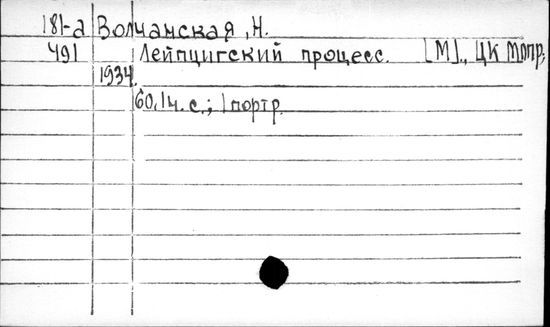 181-а Волчанская, Н.
491 Лейпцигский процесс. [М]., ЦК Мопр,
1934.
60,1ч. с.; 1 портр.